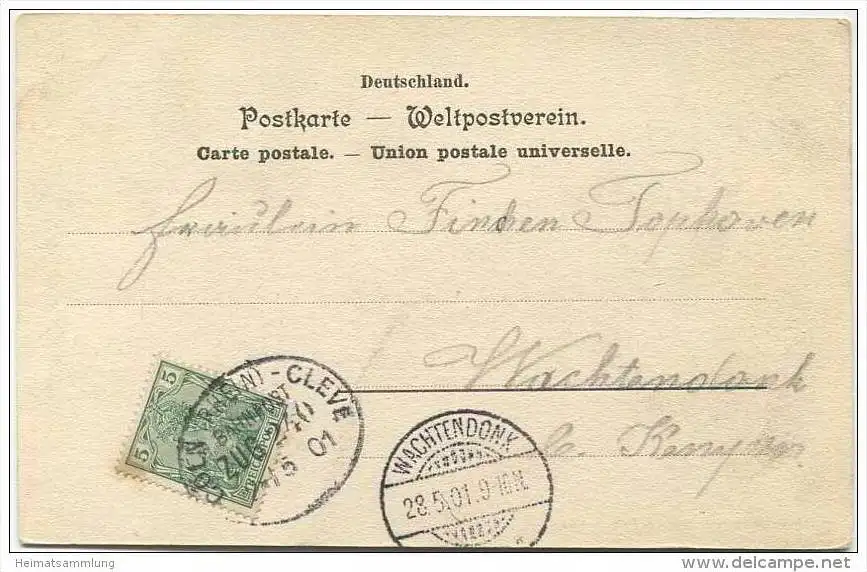 Deutschland.
Postkarte — Weltpostverein.
Carte postale. — Union postale universelle.
Fräulein Finchen Tophoven
Wachtendonk
b. Kempen
5
5
CÖLN (RHEIN) - CLEVE
BAHNPOST
ZUG
01
WACHTENDONK
28.5.01.9-10N.
Heimatsammlung
delcampe.net